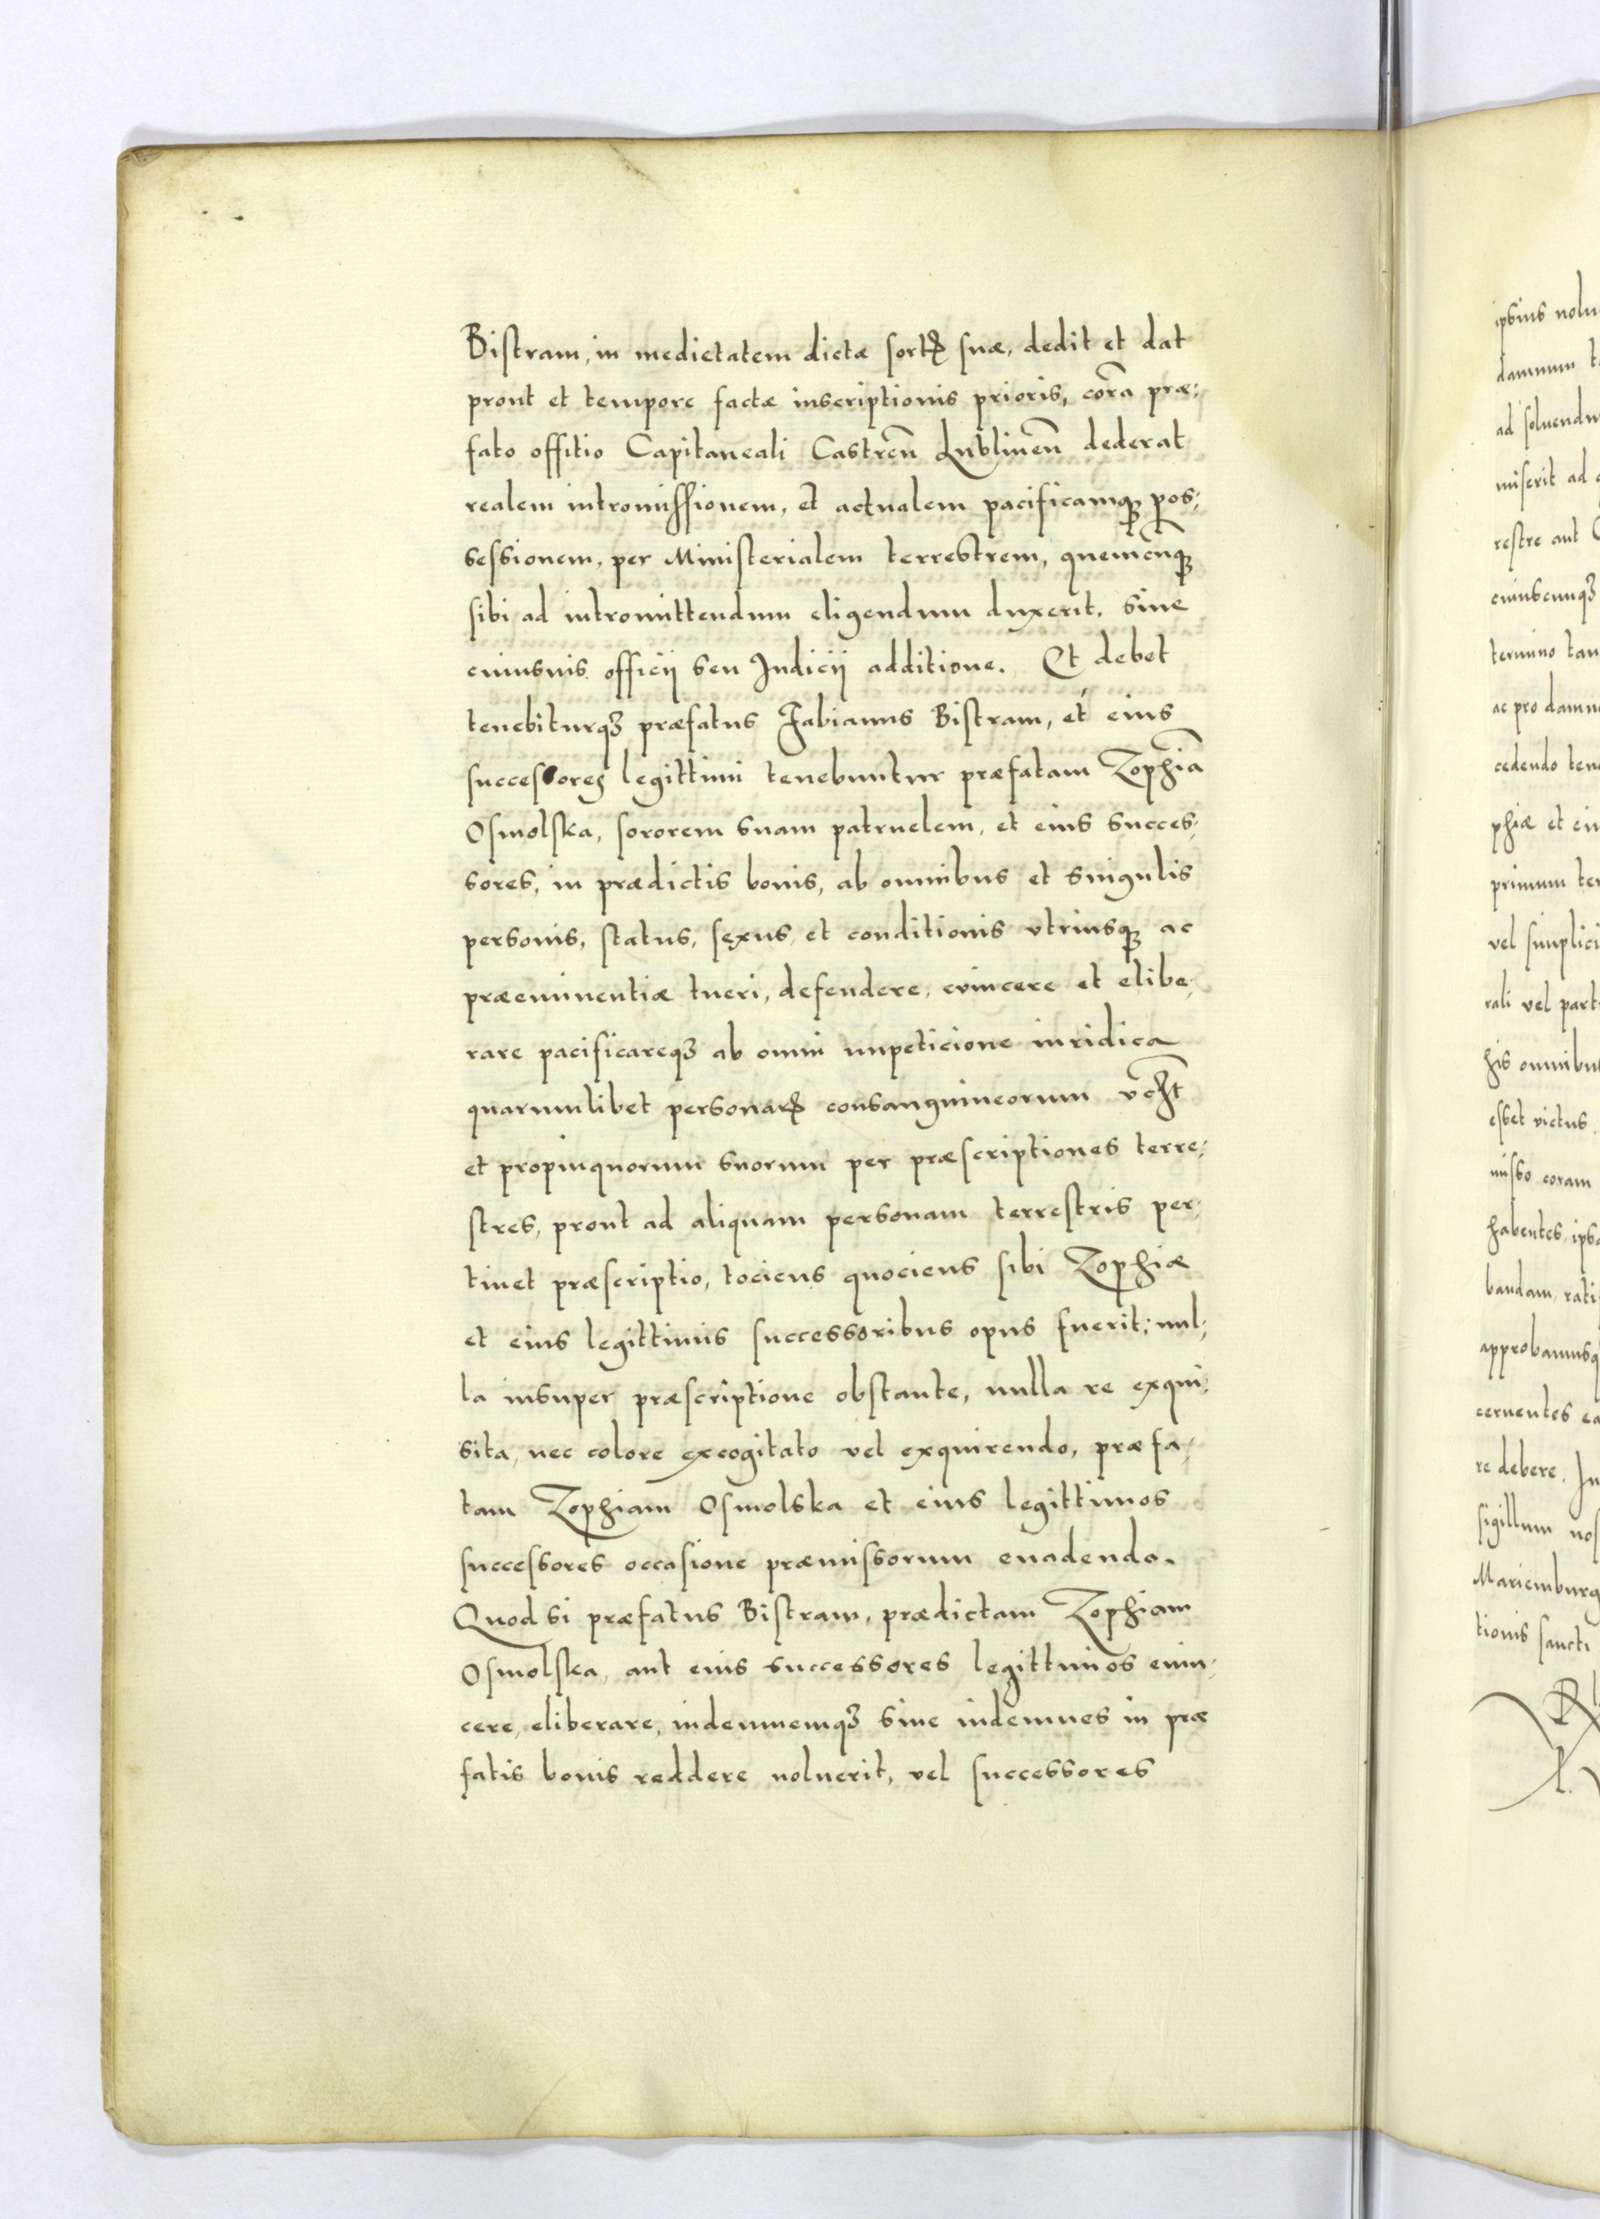 Bistram, in medietatem dictæ sortꝭ suæ, dedit et dat
prout et tempore factæ inscriptionis prioris, corã præ,
fato offitio Capitaneali Castreñ Lublineñ dederat
realem intromissionem, et actualem pacificamqꝫ pos,
sessionem, per Ministerialem terrestrem, quemcũqꝫ
sibi ad intromittendum eligendum duxerit. Sine
cuiusuis officij seu Iudicij additione. Et debet
tenebiturqꝫ præfatus Fabianus Bistram, et eius
successores legittimi tenebuntur præfatam Zophiã
Osmolska, sororem suam patruelem, et eius succes,
sores, in prædictis bonis, ab omnibus et singulis
personis, status, sexus, et conditionis vtriusqꝫ ac
præeminentiæ tueri, defendere, evincere et elibe,
rare pacificareqꝫ ab omni impeticione iuridica
quarumlibet personarꝝ consanguineorum
et propinquorum suorum per præscriptiones terre,
stres, prout ad aliquam personam terrestris per,
tinet præscriptio, tociens quociens sibi Zophiæ
et eius legittimis successoribus opus fuerit; nul,
la insuper præscriptione obstante, nulla re exqui,
sita, nec colore excogitato vel exquirendo, præfa,
tam Zophiam Osmolska et eius legittimos
successores occasione præmissorum euadenda.
Quod si præfatus Bistram, prædictam Zophiam
Osmolska, aut eius successores legittimos euin,
cere, eliberare, indemnemqꝫ siue indemnes in præ
fatis bonis reddere noluerit, vel successores
ipsius
damnum
ad
miserit ad
restre aut
cuiuscunqꝫ
termino
ac pro
cedendo
phiæ et
primum
vel
rali vel
his
esset victus
coram
habentes
bandam
cernentes
re debere. In
sigillum
tionis Sancti